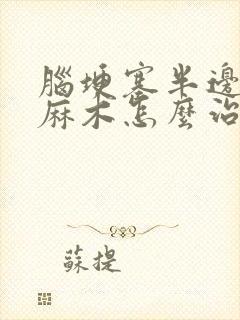 腦埂塞半邊
麻木怎麼治
蘇提